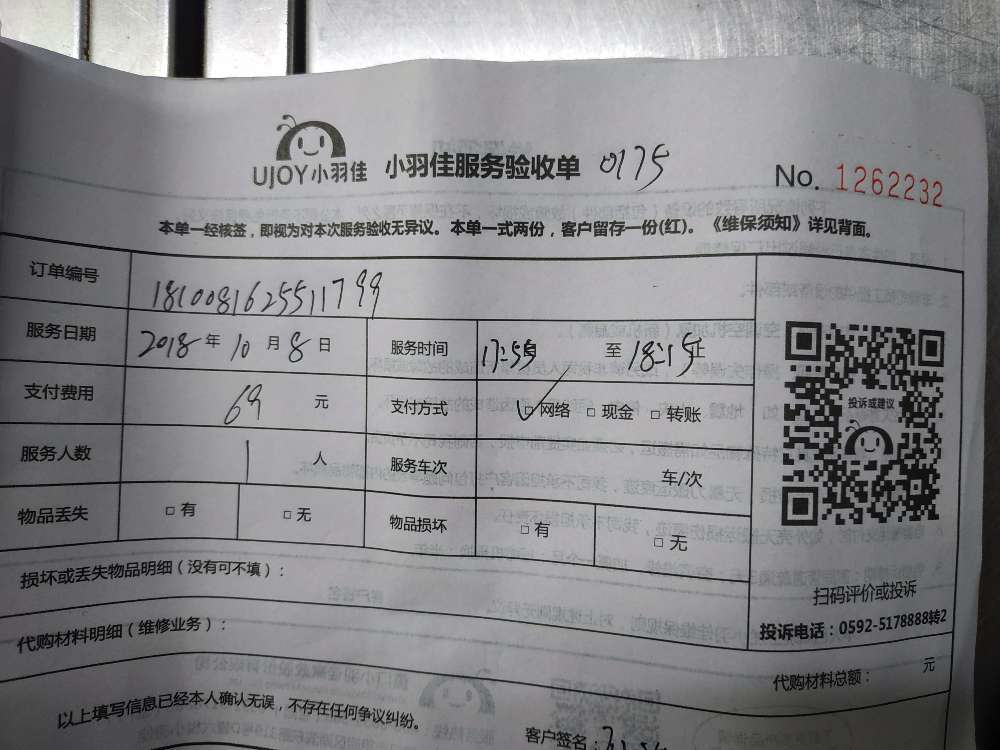 UJOY小羽佳 小羽佳服务验收单 0175 No. 1262232
本单一经核签，即视为对本次服务验收无异议。本单一式两份，客户留存一份(红)。《维保须知》详见背面。
订单编号 181008162551179９
服务日期 2018 年 10 月 8 日 服务时间 17:55 至 18:15 止
支付费用 69 元 支付方式 网络 现金 转账
服务人数 1 人 服务车次 车/次
物品丢失 有 无 物品损坏 有 无
投诉或建议
扫码评价或投诉
投诉电话：0592-5178888转2
损坏或丢失物品明细（没有可不填）：
代购材料明细（维修业务）：
代购材料总额： 元
以上填写信息已经本人确认无误，不存在任何争议纠纷。
客户签名：